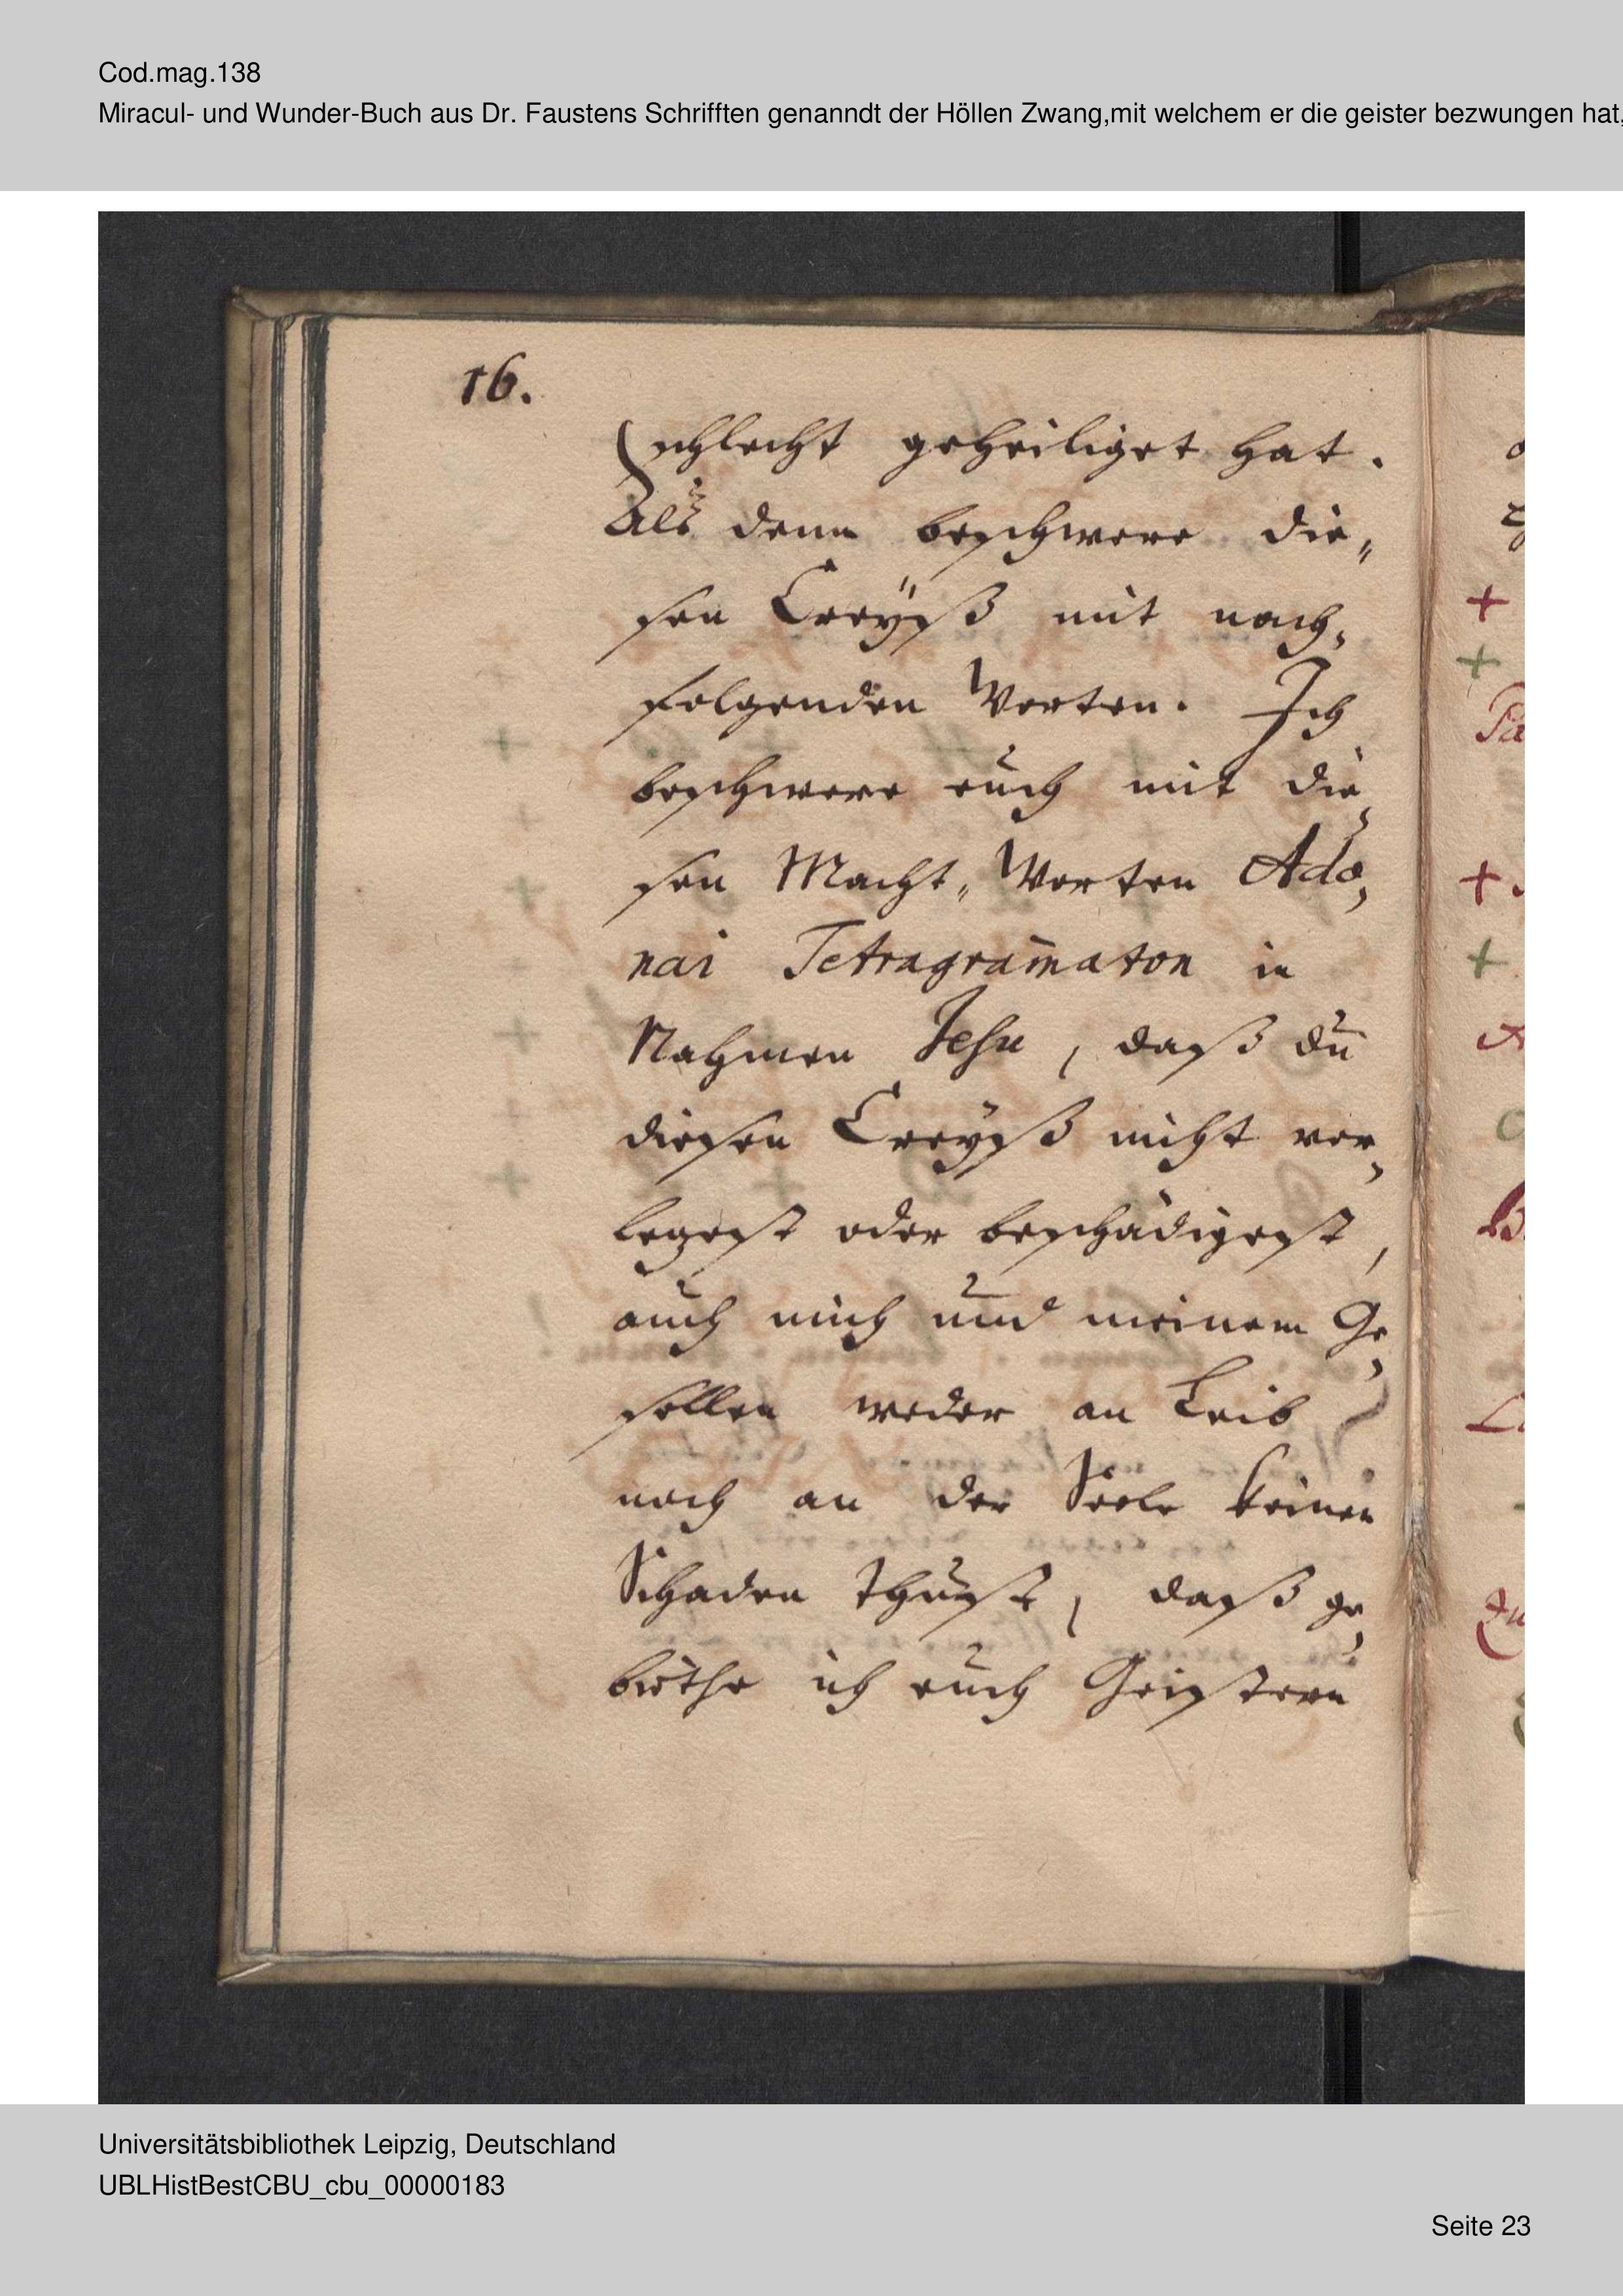 Cod.mag.138
Miracul- und Wunder-Buch aus Dr. Faustens Schrifften genanndt der Höllen Zwang,mit welchem er die geister bezwungen hat,
16.
schlecht geheiliget hat.
Als denn beschwere die„
sen Creÿß mit nach„
folgenden Worten. Ich
beschwere euch mit die„
sen Macht„Worten Ado„
nai Tetragram̄aton in
Nahmen Jesu, daß du
diesen Creÿß nicht ver„
legest oder beschädigest,
auch mich und meinem Ge„
sellen weder an Leib
noch an der Seele keinen
Schaden thust, daß ge„
bithe ich euch Geistern
Universitätsbibliothek Leipzig, Deutschland
UBLHistBestCBU_cbu_00000183
Seite 23